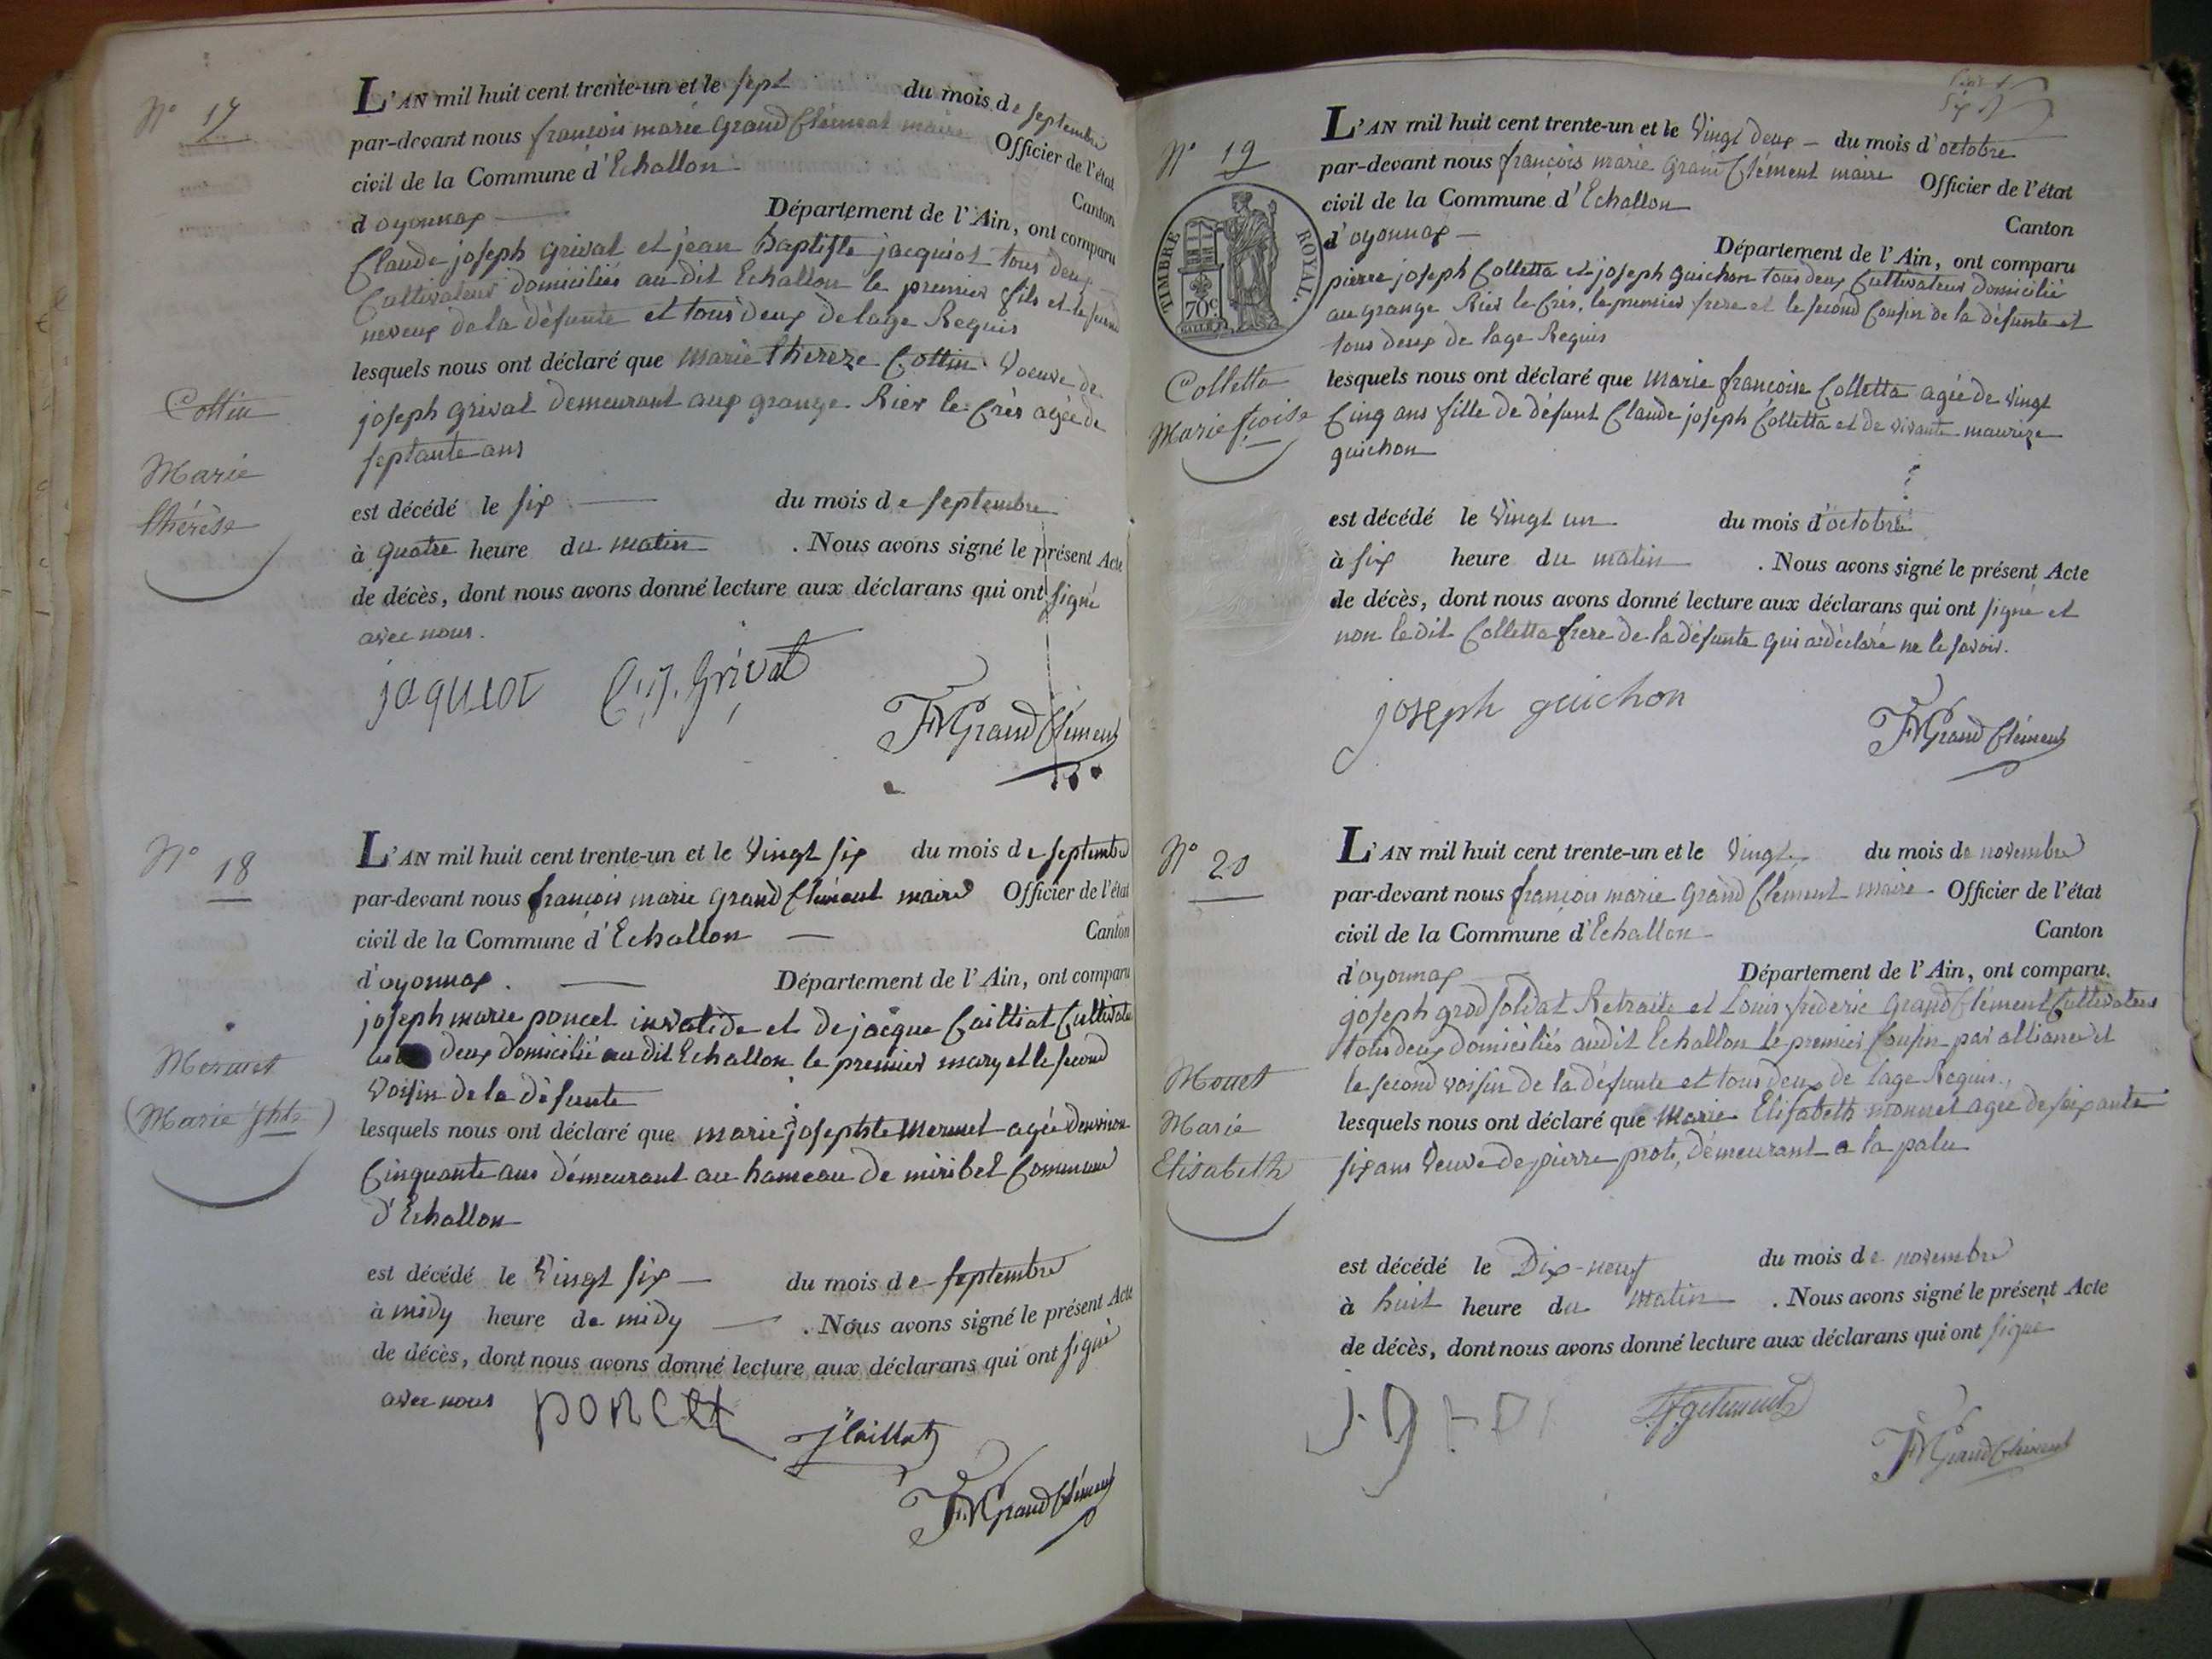 N° 17
L'AN mil huit cent trente-un et le sept du mois de septembre
par-devant nous françois marie Grand Clément maire Officier de l'état
civil de la Commune d'Echallon Canton
d'oyonnax Département de l'Ain, ont comparu
Claude joseph grivat et jean baptiste jacquiot tous deux
Cultivateurs domiciliés audit Echallon le premier fils et le second
neveux de la défunte et tous deux de lage Requis
lesquels nous ont déclaré que marie thereze Cottin veuve de
joseph grivat demeurant aux grange Rier le Crès agée de
septante ans
Cottin
Marie
thérèse
est décédé le six du mois de septembre
à quatre heure du matin . Nous avons signé le présent Acte
de décès, dont nous avons donné lecture aux déclarans qui ont signé
avec nous.
jaquiot C.j. Grivat
FMGrand Clément
N° 18
L'AN mil huit cent trente-un et le vingt six du mois de septembre
par-devant nous françois marie grand Clément maire Officier de l'état
civil de la Commune d'Echallon Canton
d'oyonnax. Département de l'Ain, ont comparu
joseph marie poncet invalide et de jacque Cailliat Cultivate
deux domicilié au dit Echallon le premier mary et le second
voisin de la défunte
Mermet
(Marie jphte)
lesquels nous ont déclaré que marie josephte Mermet agée denviron
Cinquante ans démeurant au hameau de miribel Commune
d'Echallon
est décédé le vingt six du mois de septembre
à midy heure de midy . Nous avons signé le présent Acte
de décès, dont nous avons donné lecture aux déclarans qui ont signé
avec nous poncet
J Caillat
FMGrand Clément
N° 19
L'AN mil huit cent trente-un et le vingt deux du mois d'octobre
par-devant nous françois marie Grand Clément maire Officier de l'état
civil de la Commune d'Echallon Canton
d'oyonnax Département de l'Ain, ont comparu
TIMBRE ROYAL.
70c.
pierre joseph Colletta et joseph guichon tous deux Cultivateurs domicilié
au grange Rier le Crès, le premier frere et le second Cousin de la défunte et
tous deux de lage Requis
Colletta
Marie fçoise
lesquels nous ont déclaré que marie françoise Colletta agée de vingt
Cinq ans fille de défunt Claude joseph Colletta et de vivante maurize
guichon
est décédé le vingt un du mois d'octobre
à six heure du matin . Nous avons signé le présent Acte
de décès, dont nous avons donné lecture aux déclarans qui ont signé et
non ledit Colletta frere de la défunte qui a déclaré ne le savoir.
joseph guichon
FMGrand Clément
N° 20
L'AN mil huit cent trente-un et le vingt du mois de novembre
par-devant nous françois marie Grand Clément maire Officier de l'état
civil de la Commune d'Echallon Canton
d'oyonnax Département de l'Ain, ont comparu
joseph grod soldat Retraite et Louis fréderic Grand Clément Cultivateur
tous deux domiciliés audit Echallon le premier Cousin par alliance et
le second voisin de la défunte et tous deux de lage Requis,
Monet
Marie
Elisabeth
lesquels nous ont déclaré que Marie Elisabeth monnet agée de soixante
six ans veuve de pierre prote, démeurant a la palu
est décédé le Dix-neuf du mois de novembre
à huit heure du matin . Nous avons signé le présent Acte
de décès, dont nous avons donné lecture aux déclarans qui ont signé
FMGrand Clément